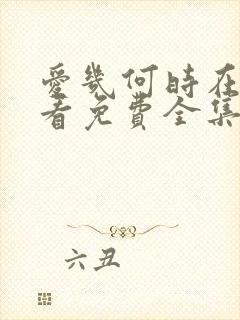 愛幾何時在
看免費全集
六丑